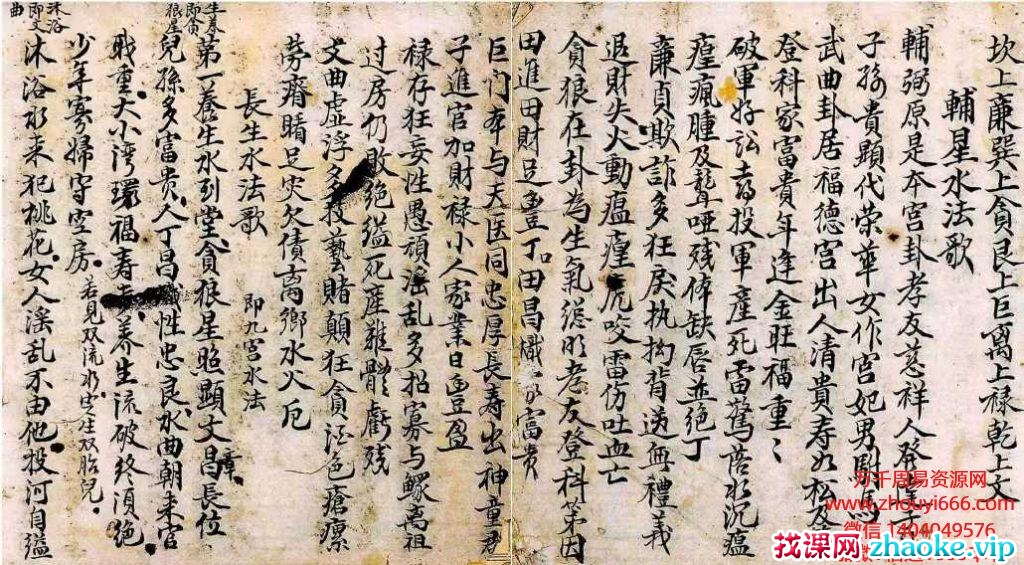 坎上廉巽上貪艮上巨离上禄乾上文
輔星水法歌
輔弼原是夲宮卦孝友慈祥人
子孫貴顯代荣華女作宮妃男
武曲卦居福德宮出人清貴寿如松
登科家富貴年逢金旺福重〻
破軍好訟投軍産死雷驚沉瘟
瘟瘋腫及聾哑残缺唇並绝丁
廉貞欺詐多狂戾执拗背送無禮義
退財失火動瘟瘟厄咬雷伤吐血亡
貪狼在卦為生氣聪明孝友登科第因
田進田財足豊丁加田昌熾富贵
巨门夲与天医同忠厚長寿出神童君
子進官加財禄小人家業日豊盈
禄存狂妄性愚頑滛乱多招寡与鰥离祖
过房仍敗绝缢死産难體虧残
文曲虚浮多技藝賭顛狂貪酒色瘡瘰
劳瘠瞎足灾欠債离鄉水火厄
長生水法歌 即九宮水法
第一养生水到堂貪狼星照顯文昌長位
兒孫多富贵人丁昌熾性忠良水曲朝来官
職重大小湾環福寿長养生流破终須绝
少年寡婦守空房 若見双流水定生双胎兒
沐浴水来犯桃花女人滛乱不由他投河自缢
生养即貪狼星
沐浴即文曲
万千周易资源网
www.zhouyi666.com
微信 1404049576
找课网zhaoke.vip